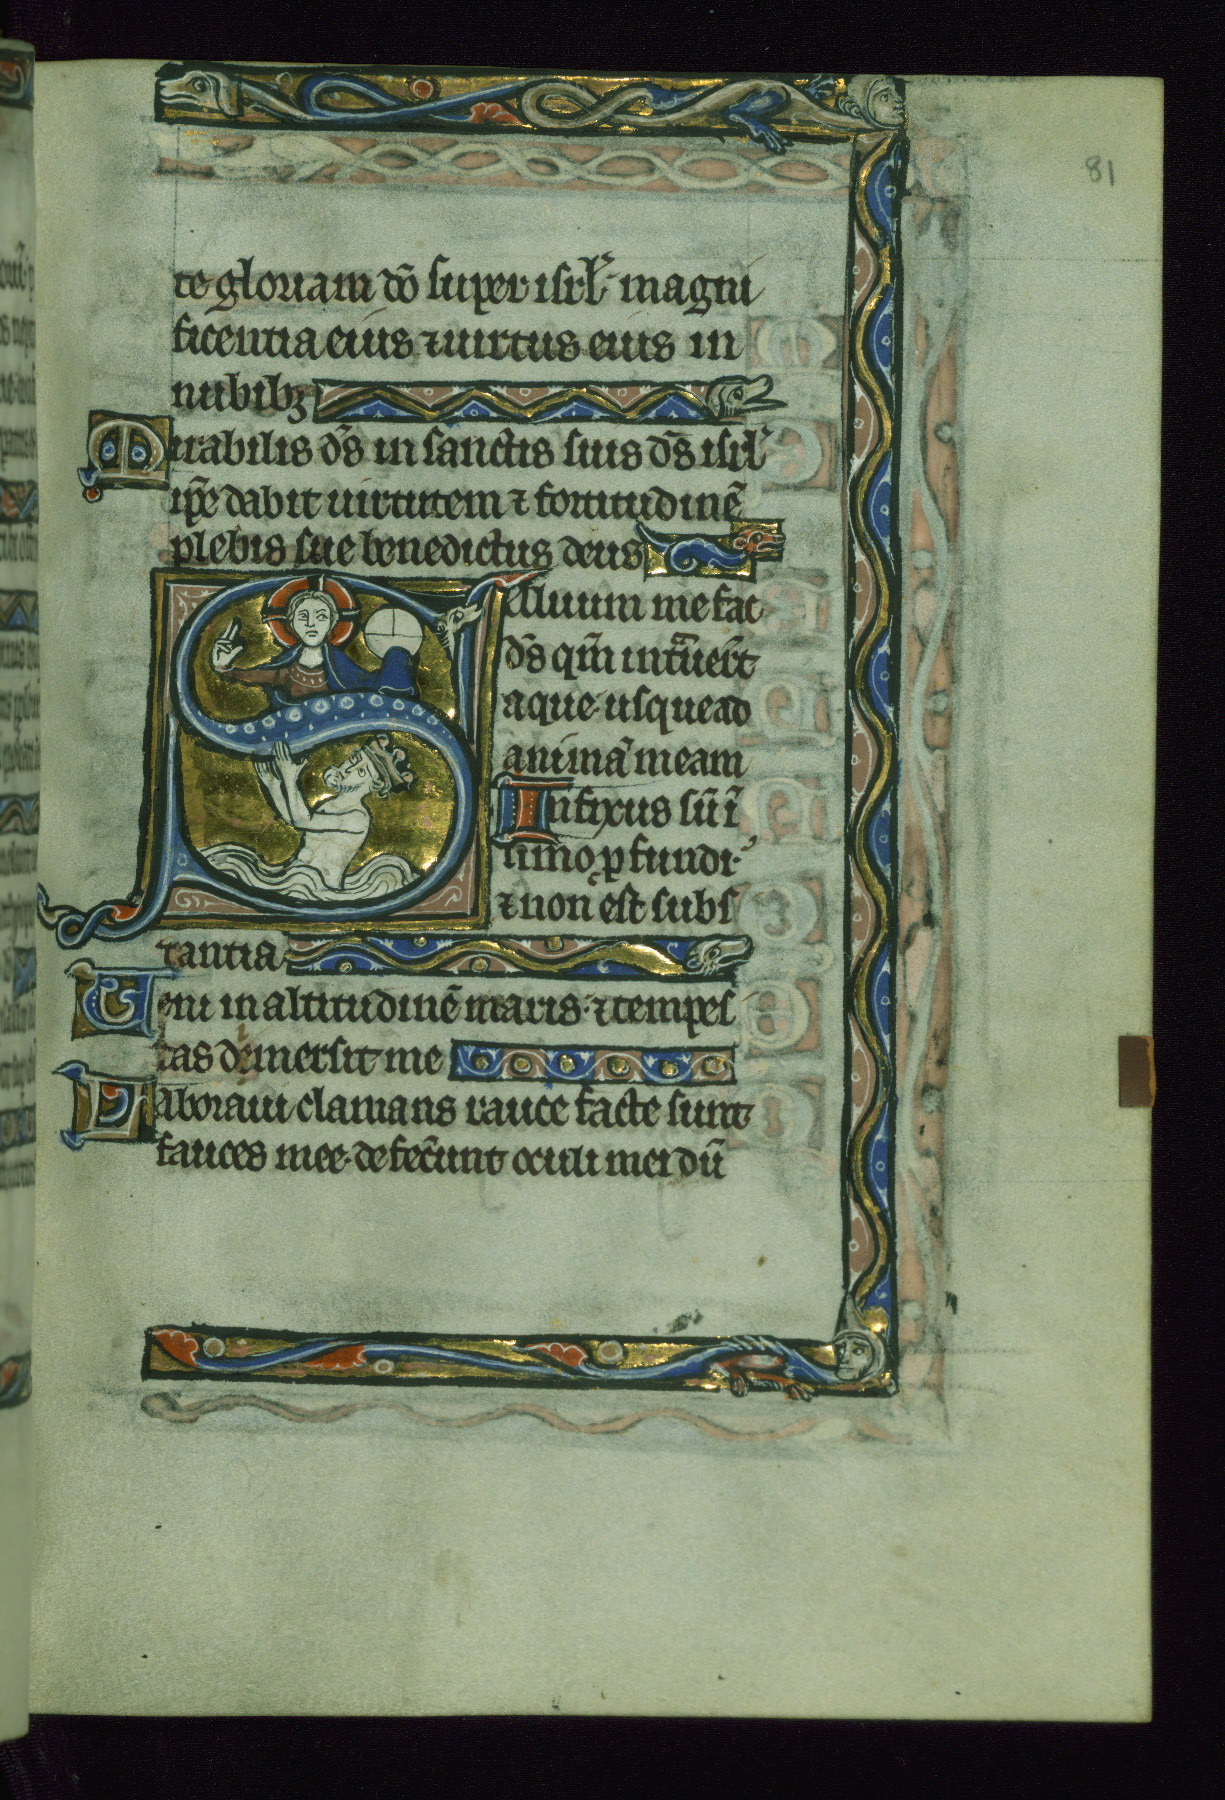 81
te gloriam dō super isrl̄· magni
ficentia eius ⁊ uirtus eius in
nubibꝫ
Mirabilis ds̄ in sanctis suis ds̄ isrl̄
ip̄e dabit uirtutem ⁊ fortitudinē
plebis sue benedictus deus
Saluum me fac
ds̄ qm̄ intͣuerūt
aque usquead
animā meam
Infixus sū ī
limo ꝓfundi·
⁊ non est subs
tantia
Ueni in altitudinē maris· ⁊ tempes
tas demersit me
Laboraui clamans rauce facte sunt
fauces mee· defec̄unt oculi mei dū